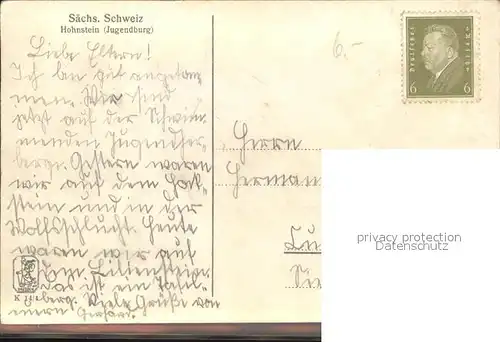 Sächs. Schweiz
Hohnstein (Jugendburg)
Liebe Eltern!
Ich bin gut angekom
men. Wir sind
jetzt auf der Schwim
menden Jugendher
berge. Gestern waren
wir auf dem Hok-
stein und in der
Wolfsschlucht. Heute
waren wir auf
dem Lilienstein.
Das ist ein Tafel-
berg. Viele Grüße von
eurem Gerhard.
Deutsches Reich
6 6
6.-
Herrn
Herman
Lu
privacy protection
Datenschutz
K